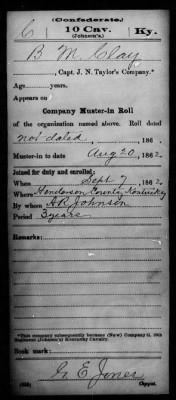 (Confederate.)
C 10 Cav. Ky.
(Johnson's.)
B. M. Clay
, Capt. J. N. Taylor's Company.*
Age years.
Appears on
Company Muster-in Roll
of the organization named above. Roll dated
not dated, 186 .
Muster-in to date Aug 20, 1862.
Joined for duty and enrolled:
When Sept 7, 1862.
Where Henderson County Kentucky
By whom A R Johnson
Period 3 years
Remarks:
*This company subsequently became (New) Company G, 10th
Regiment (Johnson's) Kentucky Cavalry.
Book mark:
G. E. Jones
Copyist.